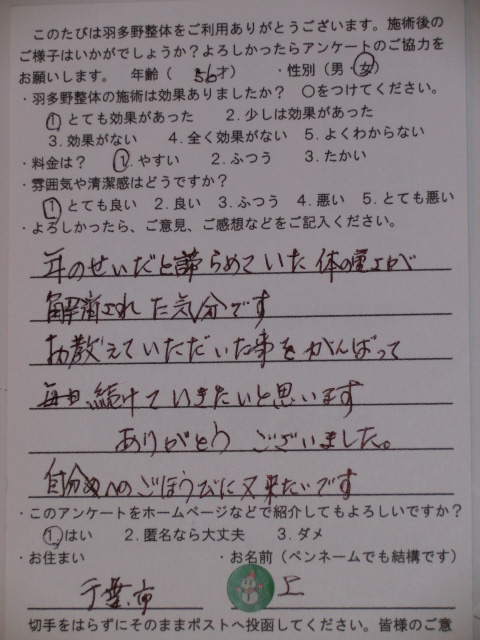 このたびは羽多野整体をご利用ありがとうございます。施術後の
ご様子はいかがでしょうか？よろしかったらアンケートのご協力を
お願いします。　年齢（　56才）　・性別（男・女）
・羽多野整体の施術は効果ありましたか？　○をつけてください。
1. とても効果があった　2. 少しは効果があった
3. 効果がない　4. 全く効果がない　5. よくわからない
・料金は？　1. やすい　2. ふつう　3. たかい
・雰囲気や清潔感はどうですか？
1. とても良い　2. 良い　3. ふつう　4. 悪い　5. とても悪い
・よろしかったら、ご意見、ご感想などをご記入ください。
のせいだと諦らめていた体の重さが
解消された気分です
お教えていただいた事をがんばって
毎日、続けていきたいと思います
ありがとう　ございました。
自分へのごほうびに又来たいです
・このアンケートをホームページなどで紹介してもよろしいですか？
1. はい　2. 匿名なら大丈夫　3. ダメ
・お住まい　・お名前（ペンネームでも結構です）
千葉市
切手をはらずにそのままポストへ投函してください。皆様のご意